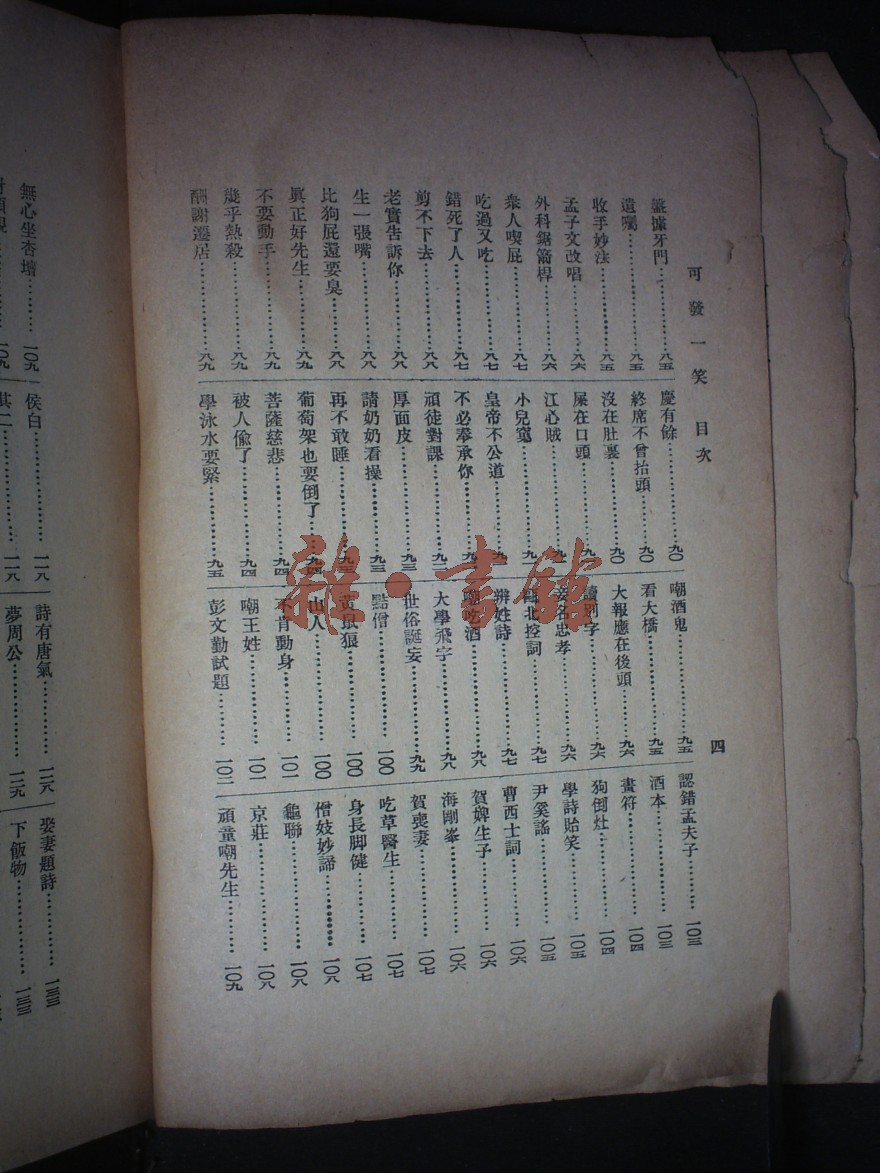 可發一笑 目次
四
盤據牙門……八五
遺囑……八五
收手妙法……八五
孟子文改唱……八六
外科鋸箭桿……八六
衆人喫屁……八七
吃過又吃……八七
錯死了人……八七
剪不下去……八八
老實告訴你……八八
生一張嘴……八八
比狗屁還要臭……八八
眞正好先生……八九
不要動手……八九
幾乎熱殺……八九
酬謝遷居……八九
慶有餘……九〇
終席不曾抬頭……九〇
沒在肚裏……九〇
屎在口頭……九
江心賊……九
小兒寃……九
皇帝不公道……九一
不必奉承你……九
頑徒對課……九二
厚面皮……九三
請奶奶看操……九三
再不敢睡……九三
葡萄架也要倒了……九四
菩薩慈悲……九四
被人偷了……九四
學泳水要緊……九五
嘲酒鬼……九五
看大橋……九五
大報應在後頭……九六
讀別字……九六
妾名忠孝……九六
北控詞……九七
辨姓詩……九七
嘲吃酒……九八
大學飛字……九八
世俗誕妄……九九
黠僧……一〇〇
黃鼠狼……一〇〇
山人……一〇〇
不肯動身……一〇一
嘲王姓……一〇一
彭文勤試題……一〇二
認錯孟夫子……一〇三
酒本……一〇三
畫符……一〇四
狗倒灶……一〇四
學詩貽笑……一〇五
尹奚謠……一〇五
曹西士詞……一〇六
賀婢生子……一〇六
海剛峯……一〇六
賀喪妻……一〇七
吃草醫生……一〇七
身長脚健……一〇七
僧妓妙諦……一〇八
龜聯……一〇八
京莊……一〇八
頑童嘲先生……一〇九
無心坐杏壇……一〇九
一〇九
侯白……一一八
其二……一一八
詩有唐氣……一二八
夢周公……一二九
娶妻題詩……一三三
下飯物……一三三
雜·書館